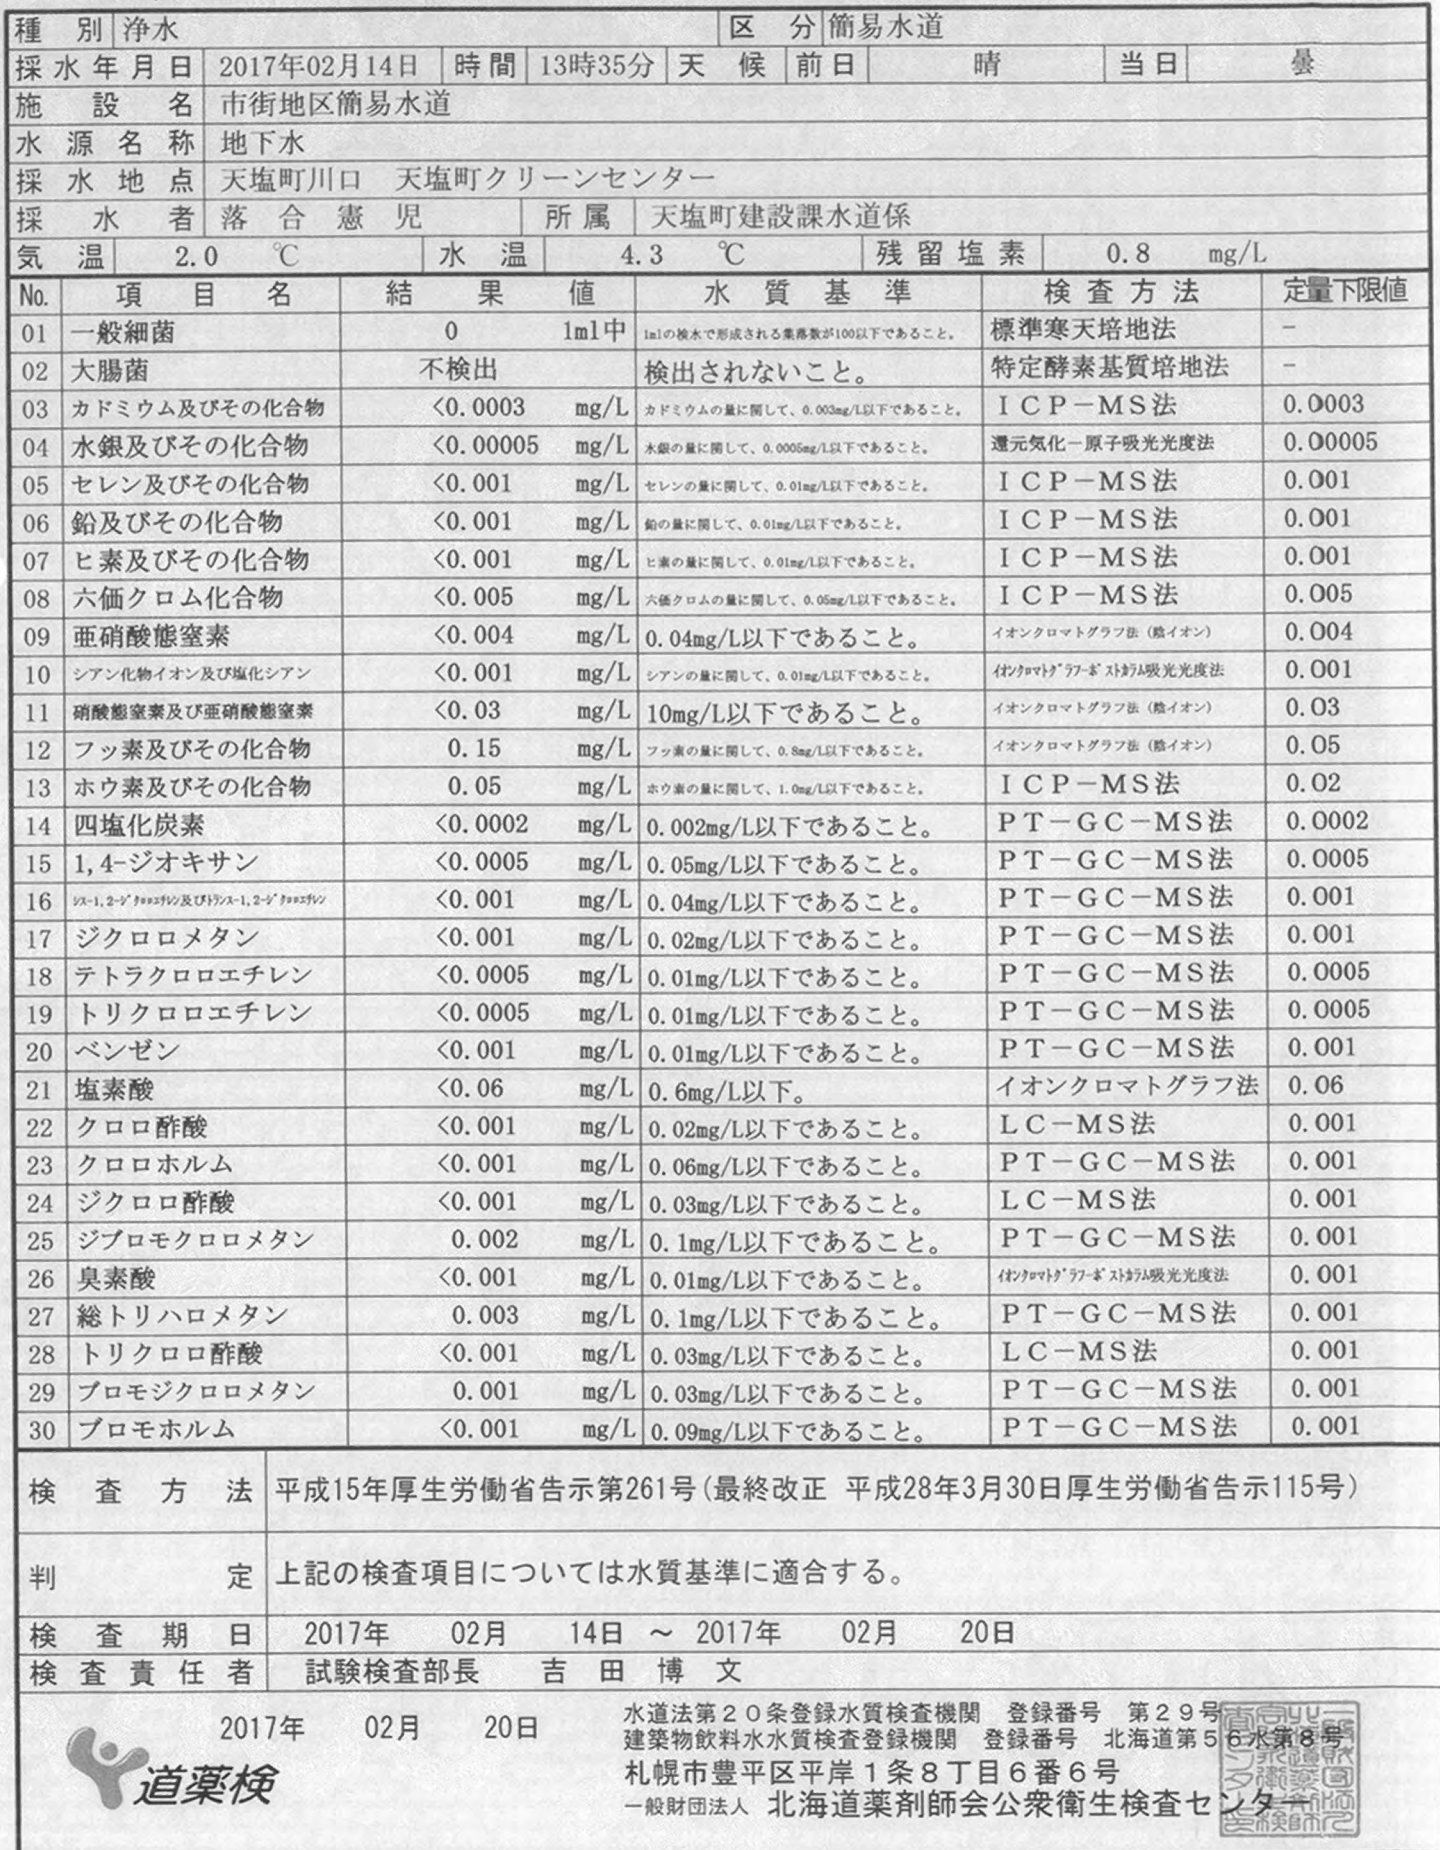 種別 浄水 区分 簡易水道
採水年月日 2017年02月14日 時間 13時35分 天候 前日 晴 当日 曇
施設名 市街地区簡易水道
水源名称 地下水
採水地点 天塩町川口 天塩町クリーンセンター
採水者 落合憲児 所属 天塩町建設課水道係
気温 2.0 ℃ 水温 4.3 ℃ 残留塩素 0.8 mg/L
No. 項目名 結果値 水質基準 検査方法 定量下限値
01 一般細菌 0 1ml中 1mlの検水で形成される集落数が100以下であること。 標準寒天培地法 −
02 大腸菌 不検出 検出されないこと。 特定酵素基質培地法 −
03 カドミウム及びその化合物 <0.0003 mg/L カドミウムの量に関して、0.003mg/L以下であること。 ICP−MS法 0.0003
04 水銀及びその化合物 <0.00005 mg/L 水銀の量に関して、0.0005mg/L以下であること。 還元気化−原子吸光光度法 0.00005
05 セレン及びその化合物 <0.001 mg/L セレンの量に関して、0.01mg/L以下であること。 ICP−MS法 0.001
06 鉛及びその化合物 <0.001 mg/L 鉛の量に関して、0.01mg/L以下であること。 ICP−MS法 0.001
07 ヒ素及びその化合物 <0.001 mg/L ヒ素の量に関して、0.01mg/L以下であること。 ICP−MS法 0.001
08 六価クロム化合物 <0.005 mg/L 六価クロムの量に関して、0.05mg/L以下であること。 ICP−MS法 0.005
09 亜硝酸態窒素 <0.004 mg/L 0.04mg/L以下であること。 イオンクロマトグラフ法（陰イオン） 0.004
10 シアン化物イオン及び塩化シアン <0.001 mg/L シアンの量に関して、0.01mg/L以下であること。 イオンクロマトグラフ−ポストカラム吸光光度法 0.001
11 硝酸態窒素及び亜硝酸態窒素 <0.03 mg/L 10mg/L以下であること。 イオンクロマトグラフ法（陰イオン） 0.03
12 フッ素及びその化合物 0.15 mg/L フッ素の量に関して、0.8mg/L以下であること。 イオンクロマトグラフ法（陰イオン） 0.05
13 ホウ素及びその化合物 0.05 mg/L ホウ素の量に関して、1.0mg/L以下であること。 ICP−MS法 0.02
14 四塩化炭素 <0.0002 mg/L 0.002mg/L以下であること。 PT−GC−MS法 0.0002
15 1,4-ジオキサン <0.0005 mg/L 0.05mg/L以下であること。 PT−GC−MS法 0.0005
16 シス-1,2-ジクロロエチレン及びトランス-1,2-ジクロロエチレン <0.001 mg/L 0.04mg/L以下であること。 PT−GC−MS法 0.001
17 ジクロロメタン <0.001 mg/L 0.02mg/L以下であること。 PT−GC−MS法 0.001
18 テトラクロロエチレン <0.0005 mg/L 0.01mg/L以下であること。 PT−GC−MS法 0.0005
19 トリクロロエチレン <0.0005 mg/L 0.01mg/L以下であること。 PT−GC−MS法 0.0005
20 ベンゼン <0.001 mg/L 0.01mg/L以下であること。 PT−GC−MS法 0.001
21 塩素酸 <0.06 mg/L 0.6mg/L以下。 イオンクロマトグラフ法 0.06
22 クロロ酢酸 <0.001 mg/L 0.02mg/L以下であること。 LC−MS法 0.001
23 クロロホルム <0.001 mg/L 0.06mg/L以下であること。 PT−GC−MS法 0.001
24 ジクロロ酢酸 <0.001 mg/L 0.03mg/L以下であること。 LC−MS法 0.001
25 ジブロモクロロメタン 0.002 mg/L 0.1mg/L以下であること。 PT−GC−MS法 0.001
26 臭素酸 <0.001 mg/L 0.01mg/L以下であること。 イオンクロマトグラフ−ポストカラム吸光光度法 0.001
27 総トリハロメタン 0.003 mg/L 0.1mg/L以下であること。 PT−GC−MS法 0.001
28 トリクロロ酢酸 <0.001 mg/L 0.03mg/L以下であること。 LC−MS法 0.001
29 ブロモジクロロメタン 0.001 mg/L 0.03mg/L以下であること。 PT−GC−MS法 0.001
30 ブロモホルム <0.001 mg/L 0.09mg/L以下であること。 PT−GC−MS法 0.001
検査方法 平成15年厚生労働省告示第261号(最終改正 平成28年3月30日厚生労働省告示115号)
判定 上記の検査項目については水質基準に適合する。
検査期日 2017年 02月 14日 ～ 2017年 02月 20日
検査責任者 試験検査部長 吉田博文
2017年 02月 20日
道薬検
水道法第２０条登録水質検査機関 登録番号 第２９号
建築物飲料水水質検査登録機関 登録番号 北海道第５６水第８号
札幌市豊平区平岸１条８丁目６番６号
一般財団法人 北海道薬剤師会公衆衛生検査センター